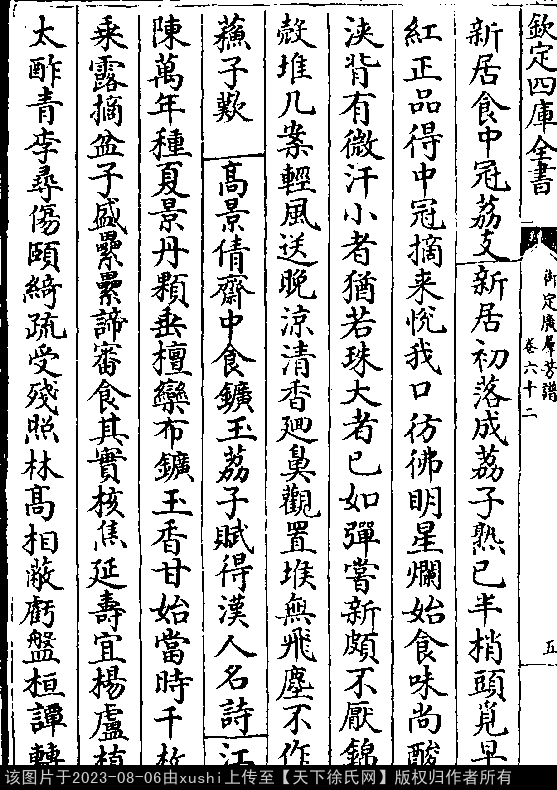 欽定四庫全書
御定廣群芳譜
卷六十二
五
新居食中冠荔支新居初落成荔子熟已半梢頭覓早
紅正品得中冠摘來悅我口彷彿明星爛始食味尚酸
浹背有微汗小者猶若珠大者已如彈嘗新頗不厭錦
殼堆几案輕風送晚涼清香廻鼻觀置堆無飛塵不作
蘓子歎 高景倩齋中食鑛玉荔子賦得漢人名詩江
陳萬年種夏景丹顆垂檀欒布鑛玉香甘始當時千枚
乘露摘盆子盛纍纍諦審食其實核焦延壽宜楊盧植
太酢青李尋傷頤綺疏受殘照林髙相蔽虧盤桓譚轉
该图片于2023-08-06由xushi上传至【天下徐氏网】版权归作者所有